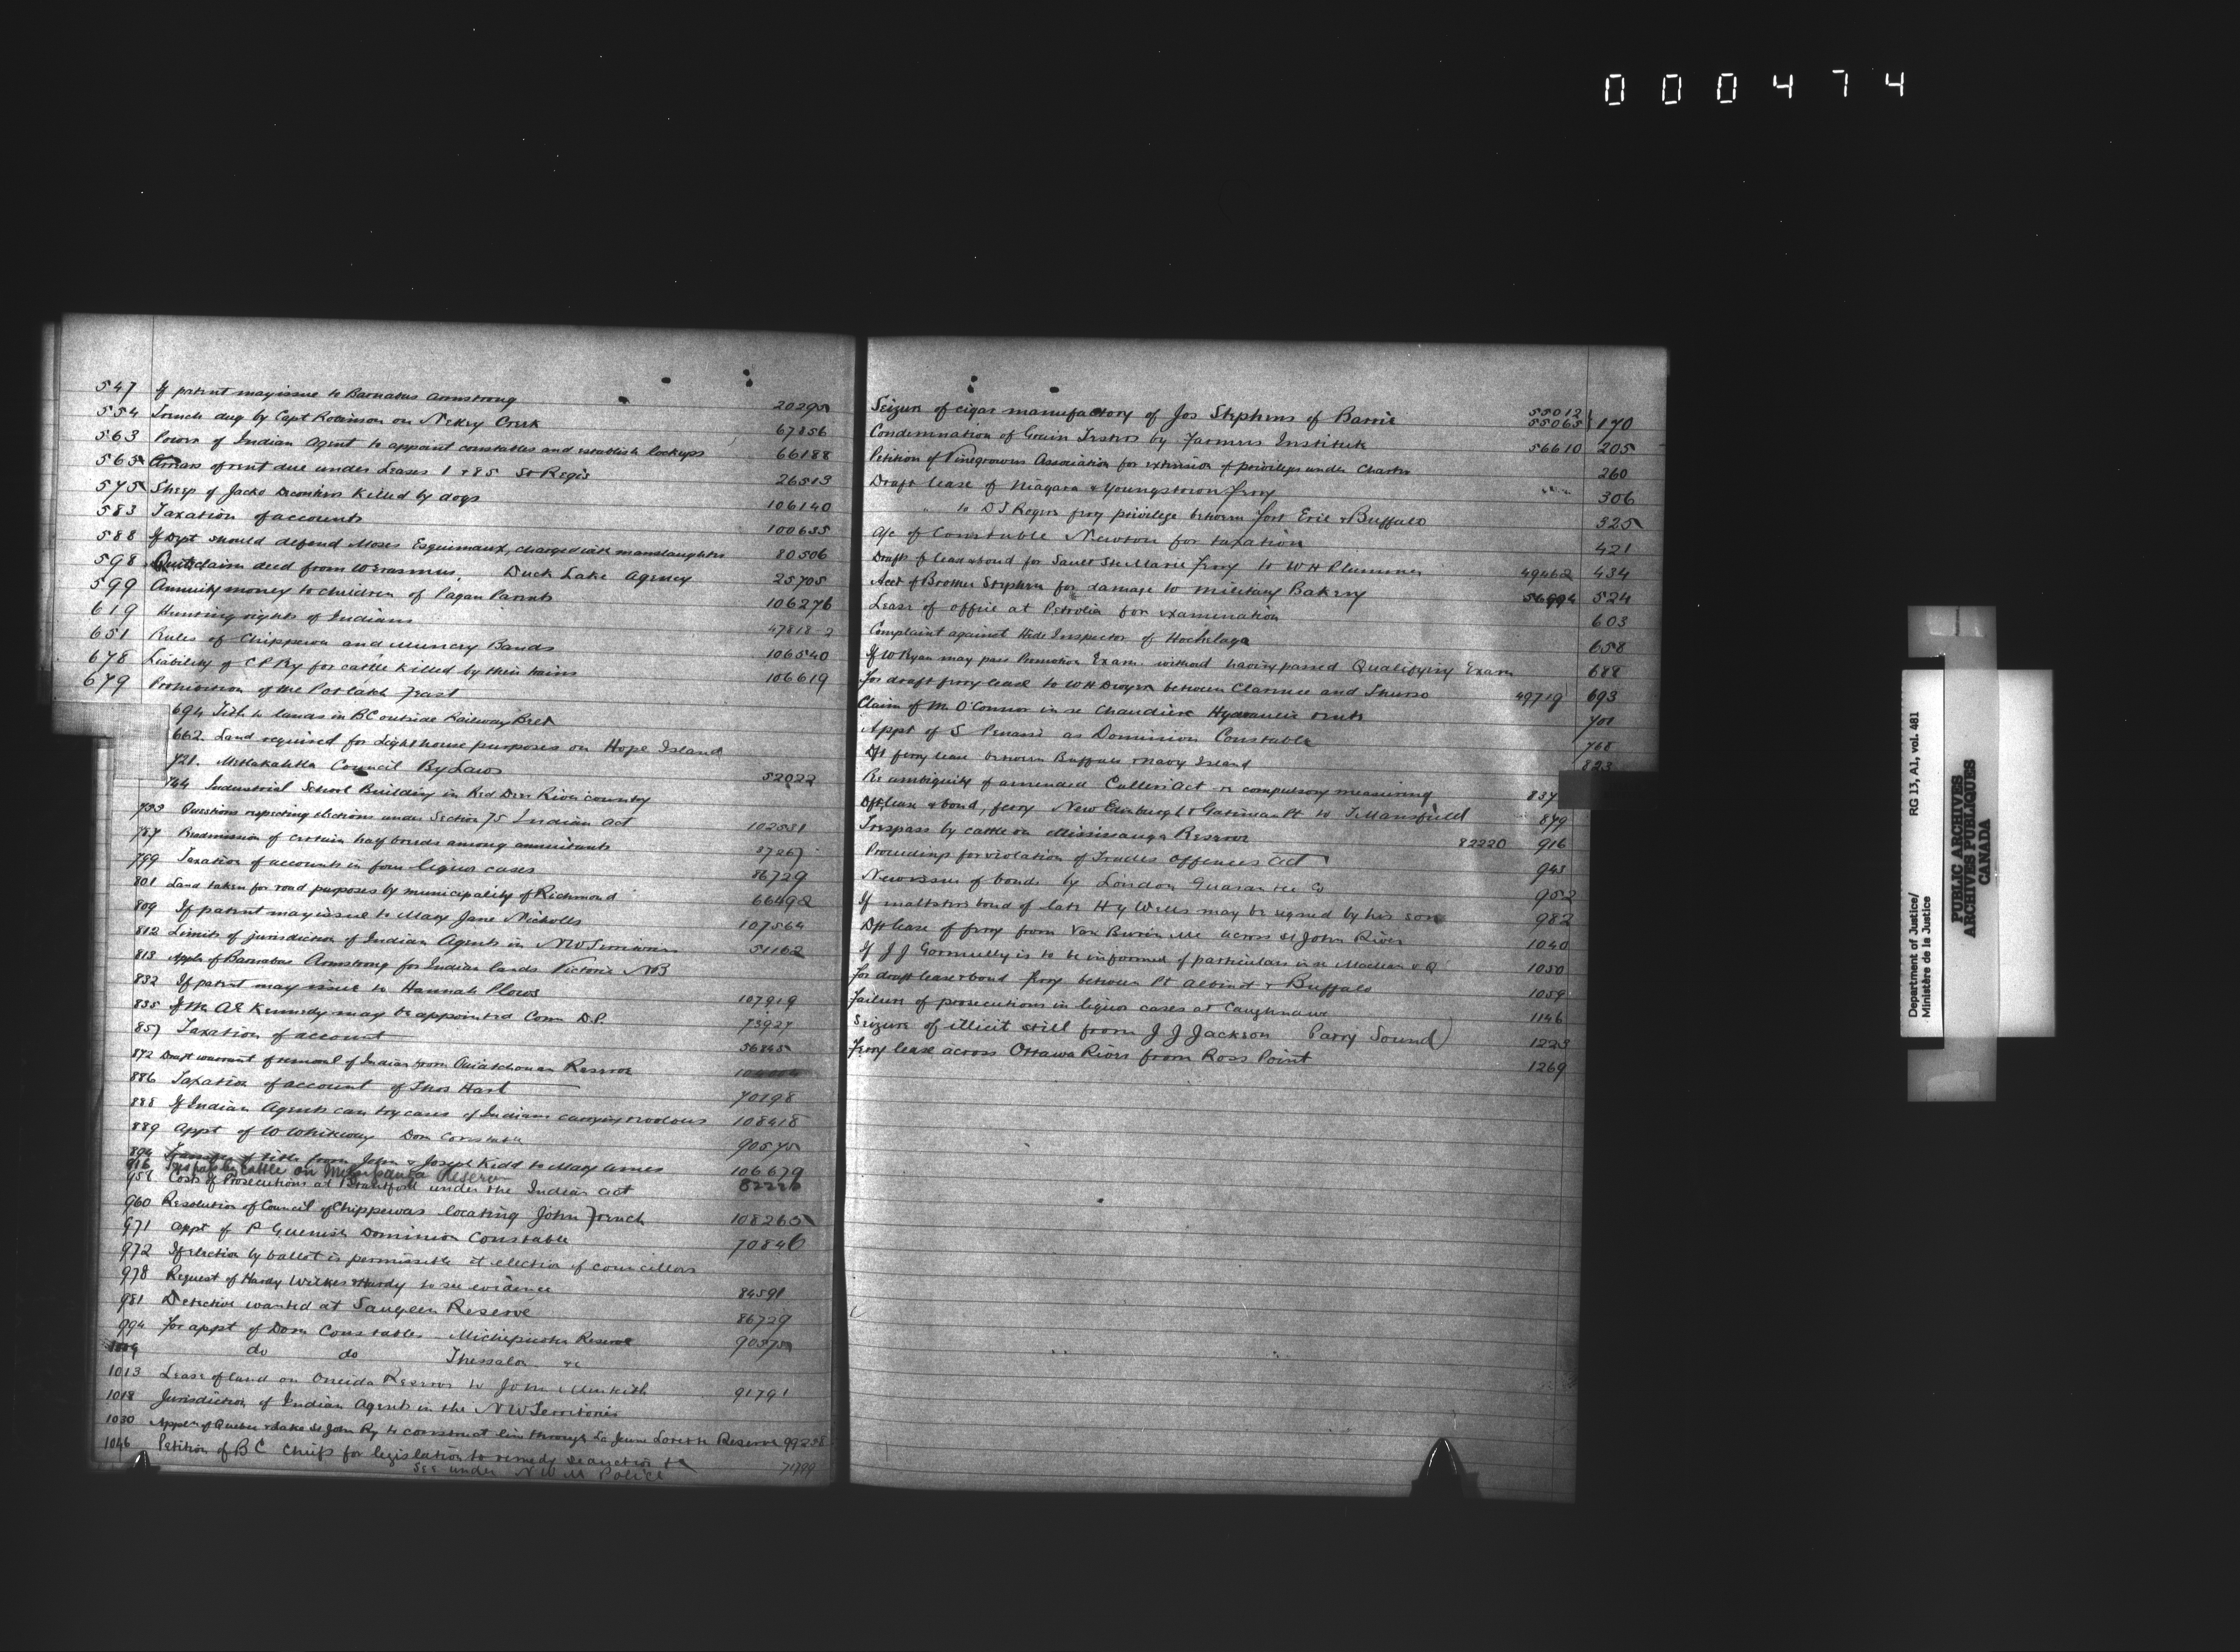 000474
547 If patent may issue to Barnabas Armstrong 20295
554 Trench dug by Capt Robinson on McKey Creek 67856
563 Power of Indian Agent to appoint constables and establish lockups 66188
565 Arrears of rent due under Leases 1 & 85 St Regis 26513
575 Sheep of Jacko killed by dogs 106140
583 Taxation of accounts 100635
588 If Dept should defend Moses Esquimaux, charged with manslaughter 80506
598 Quit claim deed from W Erasmus, Duck Lake Agency 25705
599 Annuity money to children of Pagan Parents 106276
619 Hunting rights of Indians 47818-2
651 Rules of Chippewa and Muncey Bands 106540
678 Liability of C P Ry for cattle killed by their trains 106619
679 Prohibition of the Potlatch Feast
694 Title to lands in BC outside Railway Belt
662 Land required for Lighthouse purposes on Hope Island
721. Metlakahtla Council By Laws 52022
744 Industrial School Building in Red Deer River country
753 Questions respecting elections under Section 75 Indian Act 102551
787 Readmission of certain half breeds among annuitants 37267
799 Taxation of accounts in four liquor cases 86729
801 Land taken for road purposes by municipality of Richmond 66492
809 If patent may issue to Mary Jane Nicholls 107564
812 Limits of jurisdiction of Indian Agents in NW Territories 51162
813 Appln of Barnabas Armstrong for Indian lands Victoria NB
832 If patent may issue to Hannah Plows 107919
835 If Mr A E Kennedy may be appointed Com D.P. 73927
857 Taxation of account 56845
872 Draft warrant of removal of Indian from Ouiatchouan Reserve
886 Taxation of account of Thos Hart 70198
888 If Indian Agents can try cases of Indians carrying revolvers 108418
889 Appt of W Whiteway Dom Constable 90575
894 Transfer of title from John & Joseph Kidd to Mary Ames 106679
916 Trespass by Cattle on Mississauga Reserve
956 Costs of Prosecutions at Brantford under the Indian Act 82220
960 Resolution of Council of Chippewas locating John French 108265
971 Appt of P Guenish Dominion Constable 70846
972 If election by ballot is permissible at election of councillors
978 Request of Hardy Wilkes & Hardy to see evidence 84591
981 Detective wanted at Saugeen Reserve 86729
994 For appt of Dom Constables Michipicoten Reserve 90575
1009 do do Thessalon &c
1013 Lease of land on Oneida Reserve to John 91791
1018 Jurisdiction of Indian Agents in the NW Territories
1030 Appln of Quebec & Lake St John Ry to construct line through La Jeune Lorette Reserve 99238
1046 Petition of BC Chiefs for legislation to remedy seduction &c 71799
See under N W M Police
Seizure of cigar manufactory of Jos Stephens of Barrie 55012 55065 } 170
Condemnation of Grain Testers by Farmers Institute 56610 205
Petition of Vinegrowers Association for extension of privileges under Charter 260
Draft lease of Niagara & Youngstown ferry 306
" to D J Rogers ferry privilege between Fort Erie & Buffalo 325
A/c of Constable Newton for taxation 421
Drafts of lease & bond for Sault Ste Marie Ferry to W H Plummer 49462 434
Acct of Brother Stephen for damage to military Bakery 56994 524
Lease of office at Petrolia for examination 603
Complaint against Hide Inspector of Hochelaga 658
If W Ryan may pass Promotion Exam. without having passed Qualifying Exam 688
For draft ferry lease to W H Dwyer between Clarence and Thurso 49719 693
Claim of Mr O'Connor in re Chaudiere Hydraulic rents 701
Appt of S Penassi as Dominion Constable 768
Dft ferry lease between Buffalo & Navy Island 823
Re ambiguity of amended Cullers Act re compulsory measuring 837
Dft lease & bond, ferry New Edinburgh & Gatineau Pt to T Mansfield 879
Trespass by cattle on Mississauga Reserve 82220 916
Proceedings for violation of Trades Offences Act 943
New issue of bonds by London Guarantee Co 952
If maltsters bond of late Hy Wells may be signed by his sons 982
Dft lease of ferry from Van Buren Me across St John River 1040
If J J Gormully is to be informed of particulars in re Maclean v Q 1050
For draft lease & bond ferry between Pt Albino & Buffalo 1059
Failure of prosecutions in liquor cases at Caughnawaga 1146
Seizure of illicit still from J J Jackson Parry Sound) 1223
Ferry lease across Ottawa River from Ross Point 1269
Department of Justice/
Ministère de la Justice
RG 13, A1, vol. 481
PUBLIC ARCHIVES
ARCHIVES PUBLIQUES
CANADA